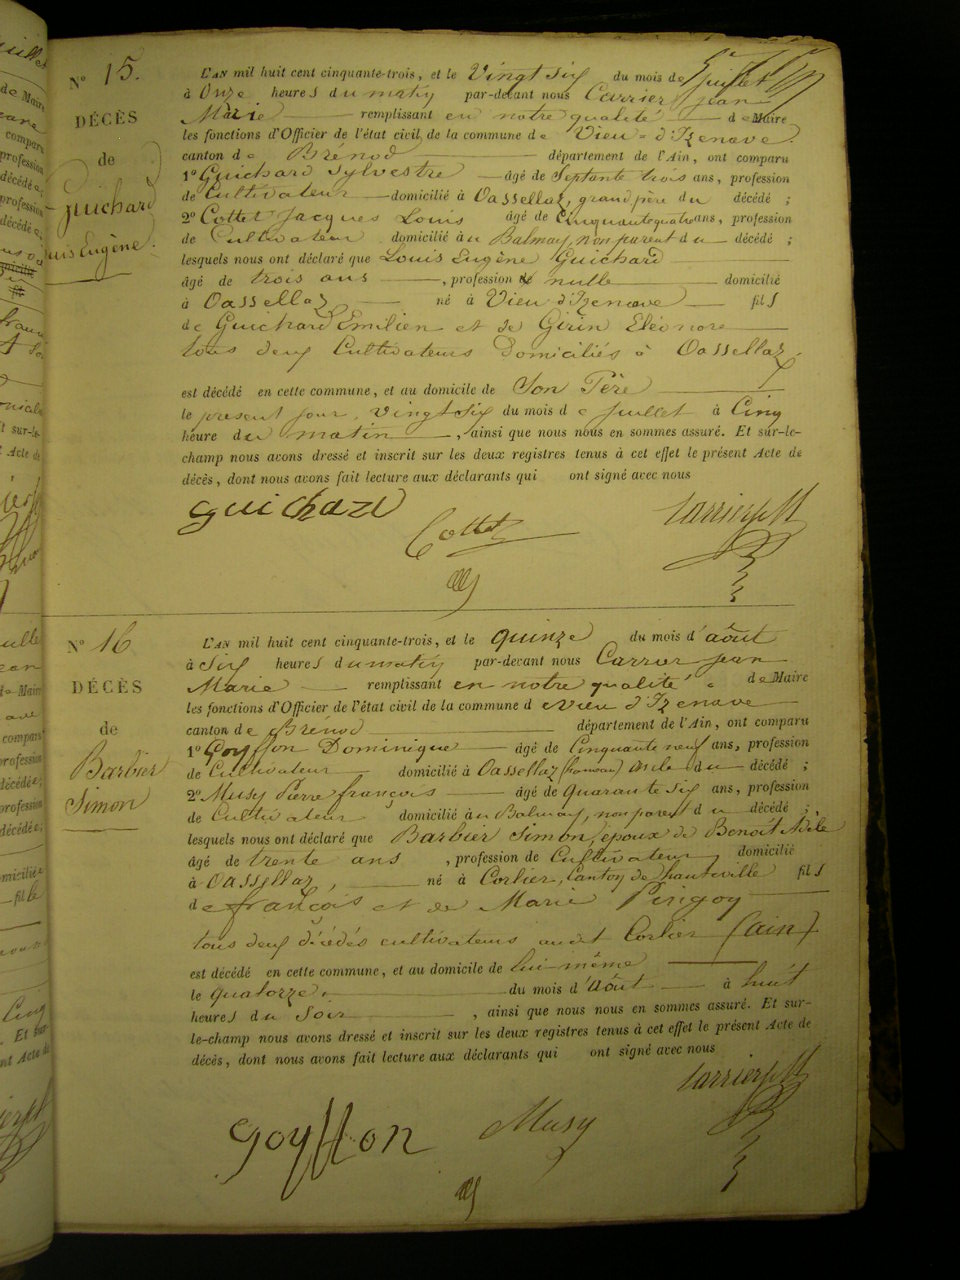 N° 15.
DÉCÈS
de
Guichard
Louis Eugène.
L'AN mil huit cent cinquante-trois, et le Vingt Six du mois de Juillet
à Onze heures du matin par-devant nous Carrier Jean
Marie remplissant en notre qualité de Maire
les fonctions d'Officier de l'état civil de la commune de Vieu-d'Izenave.
canton de Brénod département de l'Ain, ont comparu
1° Guichard Sylvestre âgé de Septante trois ans, profession
de Cultivateur domicilié à Oassellaz, grand père du décédé ;
2° Cottet Jacques Louis âgé de Cinquante quatre ans, profession
de Cultivateur domicilié au Balmay, non parent du décédé ;
lesquels nous ont déclaré que Louis Eugène Guichard
âgé de trois ans , profession de nulle domicilié
à Oassellaz né à Vieu d'Izenave fils
de Guichard Emilien et de Girin Eléonore
tous deux Cultivateurs Domiciliés à Oassellaz
est décédé en cette commune, et au domicile de Son Père
le présent jour, vingt six du mois de Juillet à Cinq
heure du matin , ainsi que nous nous en sommes assuré. Et sur-le-
champ nous avons dressé et inscrit sur les deux registres tenus à cet effet le présent Acte de
décès, dont nous avons fait lecture aux déclarants qui ont signé avec nous
guichard
Cottet
Carrier J M
N° 16
DÉCÈS
de
Barbier
Simon
L'AN mil huit cent cinquante-trois, et le quinze du mois d'août
à Six heures du matin par-devant nous Carrier Jean
Marie remplissant en notre qualité de Maire
les fonctions d'Officier de l'état civil de la commune de Vieu d'Izenave
canton de Brénod département de l'Ain, ont comparu
1° Goyffon Dominique âgé de Cinquante neuf ans, profession
de Cultivateur domicilié à Oassellaz (hameau) oncle du décédé ;
2° Musy Pierre françois âgé de quarante Six ans, profession
de Cultivateur domicilié au Balmay, non parent du décédé ;
lesquels nous ont déclaré que Barbier Simon, époux de Benoît Adèle
âgé de trente ans , profession de Cultivateur domicilié
à Oassellaz, né à Corlier, Canton de hauteville fils
de françois et de Marie Pingon
tous deux décédés cultivateurs audit Corlier (ain)
est décédé en cette commune, et au domicile de lui-même
le quatorze, du mois d'Août à huit
heures du Soir , ainsi que nous nous en sommes assuré. Et sur-
le-champ nous avons dressé et inscrit sur les deux registres tenus à cet effet le présent Acte de
décès, dont nous avons fait lecture aux déclarants qui ont signé avec nous
Carrier J M
goyffon
Musy